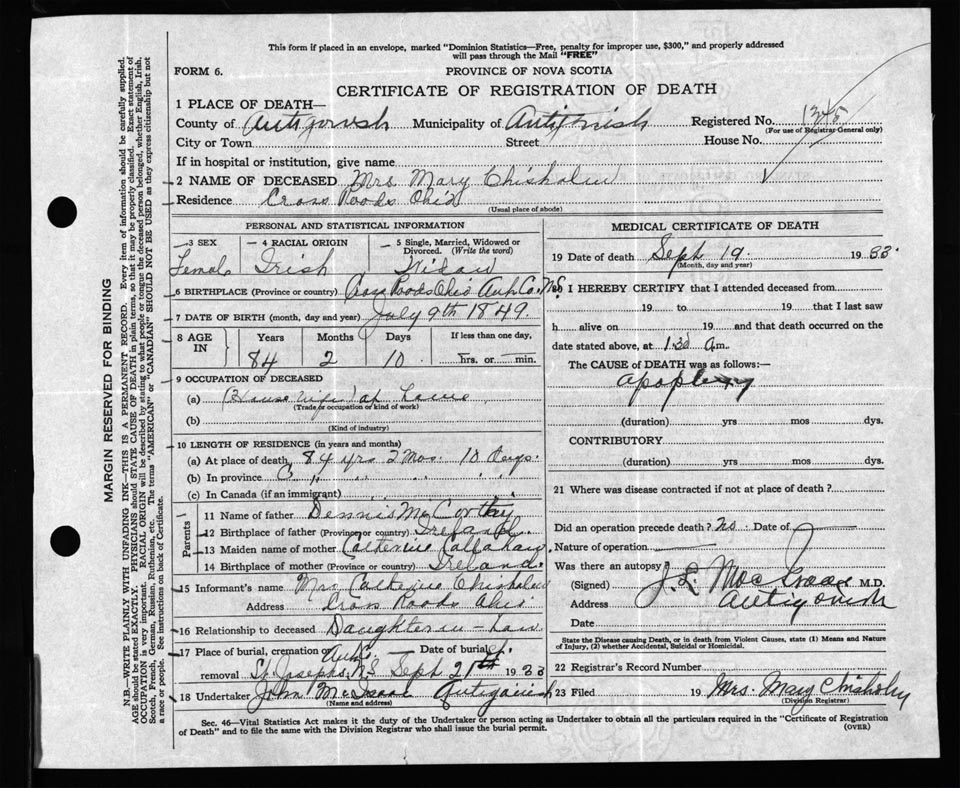 This form if placed in an envelope, marked "Dominion Statistics—Free, penalty for improper use, $300," and properly addressed
will pass through the Mail "FREE"
FORM 6.
PROVINCE OF NOVA SCOTIA
CERTIFICATE OF REGISTRATION OF DEATH
1 PLACE OF DEATH—
County of Antigonish Municipality of Antigonish Registered No. 1345
(For use of Registrar General only)
City or Town Street House No.
If in hospital or institution, give name
2 NAME OF DECEASED Mrs Mary Chisholm
Residence Cross Roads Ohio
(Usual place of abode)
PERSONAL AND STATISTICAL INFORMATION
3 SEX 4 RACIAL ORIGIN 5 Single, Married, Widowed or
Divorced. (Write the word)
Female Irish Widow
6 BIRTHPLACE (Province or country) Cross Roads Ohio Ant. Co. N.S.
7 DATE OF BIRTH (month, day and year) July 9th 1849.
8 AGE IN Years Months Days If less than one day,
84 2 10 hrs. or min.
9 OCCUPATION OF DECEASED
(a) House wife at home
(Trade or occupation or kind of work)
(b)
(Kind of industry)
10 LENGTH OF RESIDENCE (in years and months)
(a) At place of death 84 yrs 2 Mos. 10 Days.
(b) In province " " " "
(c) In Canada (if an immigrant)
Parents
11 Name of father Dennis McCarthy
12 Birthplace of father (Province or country) Ireland
13 Maiden name of mother Catherine Callahan
14 Birthplace of mother (Province or country) Ireland.
15 Informant's name Mrs Catherine Chisholm
Address Cross Roads Ohio
16 Relationship to deceased Daughter in-Law
17 Place of burial, cremation or Ant. Date of burial
removal St Josephs N.S Sept 21st 1933
18 Undertaker John McIsaac Antigonish
(Name and address)
MEDICAL CERTIFICATE OF DEATH
19 Date of death Sept 19. 1933.
(Month, day and year)
I HEREBY CERTIFY that I attended deceased from
19 to 19 that I last saw
h alive on 19 and that death occurred on
date stated above, at 1.30 a.m.
The CAUSE of DEATH was as follows:—
apoplexy
(duration) yrs mos dys.
CONTRIBUTORY
(duration) yrs mos dys.
21 Where was disease contracted if not at place of death?
Did an operation precede death? no. Date of
Nature of operation
Was there an autopsy
(Signed) M.D.
Address Antigonish
Date
State the Disease causing Death, or in death from Violent Causes, state (1) Means and Nature
of Injury, (2) whether Accidental, Suicidal or Homicidal.
22 Registrar's Record Number
23 Filed 19 Mrs. Mary Chisholm
(Division Registrar)
Sec. 46—Vital Statistics Act makes it the duty of the Undertaker or person acting as Undertaker to obtain all the particulars required in the "Certificate of Registration
of Death" and to file the same with the Division Registrar who shall issue the burial permit.
(OVER)
MARGIN RESERVED FOR BINDING
N.B.—WRITE PLAINLY WITH UNFADING INK—THIS IS A PERMANENT RECORD. Every item of information should be carefully supplied.
AGE should be stated EXACTLY. PHYSICIANS should STATE CAUSE OF DEATH in plain terms, so that it may be properly classified. Exact statement of
OCCUPATION is very important. RACIAL ORIGIN will be described by stating to what people or tongue the deceased person belonged, whether English, Irish,
Scotch, French, German, Russian, Ruthenian, etc. The terms "AMERICAN" or "CANADIAN" SHOULD NOT BE USED as they express citizenship but not
a race or people. See instructions on back of Certificate.